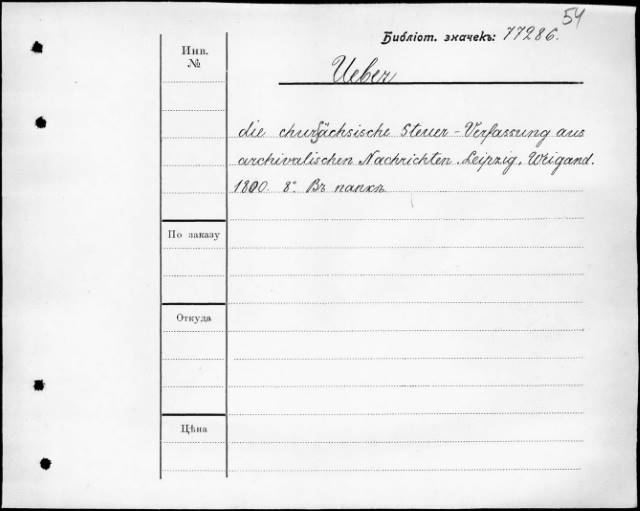 54
Библіот. значекъ: 77286.
Инв.
№
Ueber
die chursächsische Steuer-Verfassung aus
archivalischen Nachrichten. Leipzig, Weigand.
1800. 8°. Въ папкѣ
По заказу
Откуда
Цѣна